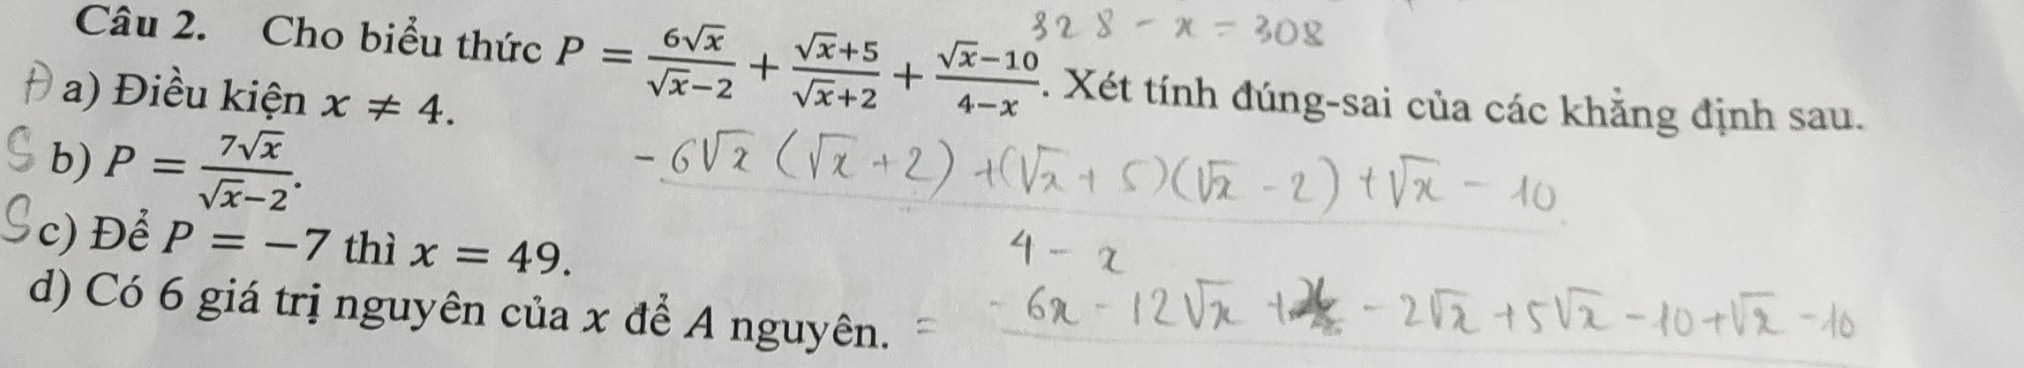 328 - x = 308
Câu 2. Cho biểu thức P = \frac{6\sqrt{x}}{\sqrt{x}-2} + \frac{\sqrt{x}+5}{\sqrt{x}+2} + \frac{\sqrt{x}-10}{4-x}. Xét tính đúng-sai của các khẳng định sau.
Đ a) Điều kiện x ≠ 4.
S b) P = \frac{7\sqrt{x}}{\sqrt{x}-2}.
- 6√x (√x + 2) + (√x + 5)(√x - 2) + √x - 10
4 - x
S c) Để P = −7 thì x = 49.
d) Có 6 giá trị nguyên của x để A nguyên.
= - 6x - 12√x + - 2√x + 5√x - 10 + √x - 10